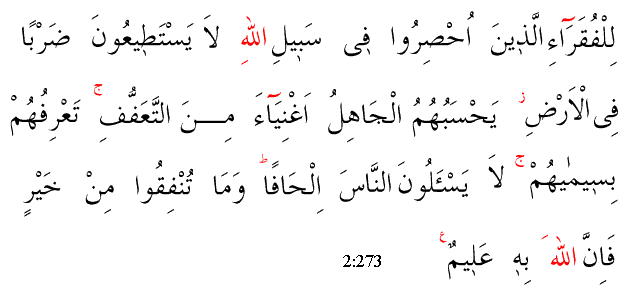 لِلْفُقَرَآءِ الَّذِينَ اُحْصِرُوا فِى سَبِيلِ اللّٰهِ لَا يَسْتَطِيعُونَ ضَرْبًا
فِى الْاَرْضِ ز يَحْسَبُهُمُ الْجَاهِلُ اَغْنِيَآءَ مِـــنَ التَّعَفُّفِ ۚ تَعْرِفُهُمْ
بِسِيمٰيهُمْ ۚ لَا يَسْـَٔلُونَ النَّاسَ اِلْحَافًا ؕ وَمَا تُنْفِقُوا مِنْ خَيْرٍ
فَاِنَّ اللّٰهَ بِهٖ عَلِيمٌ ع 2:273